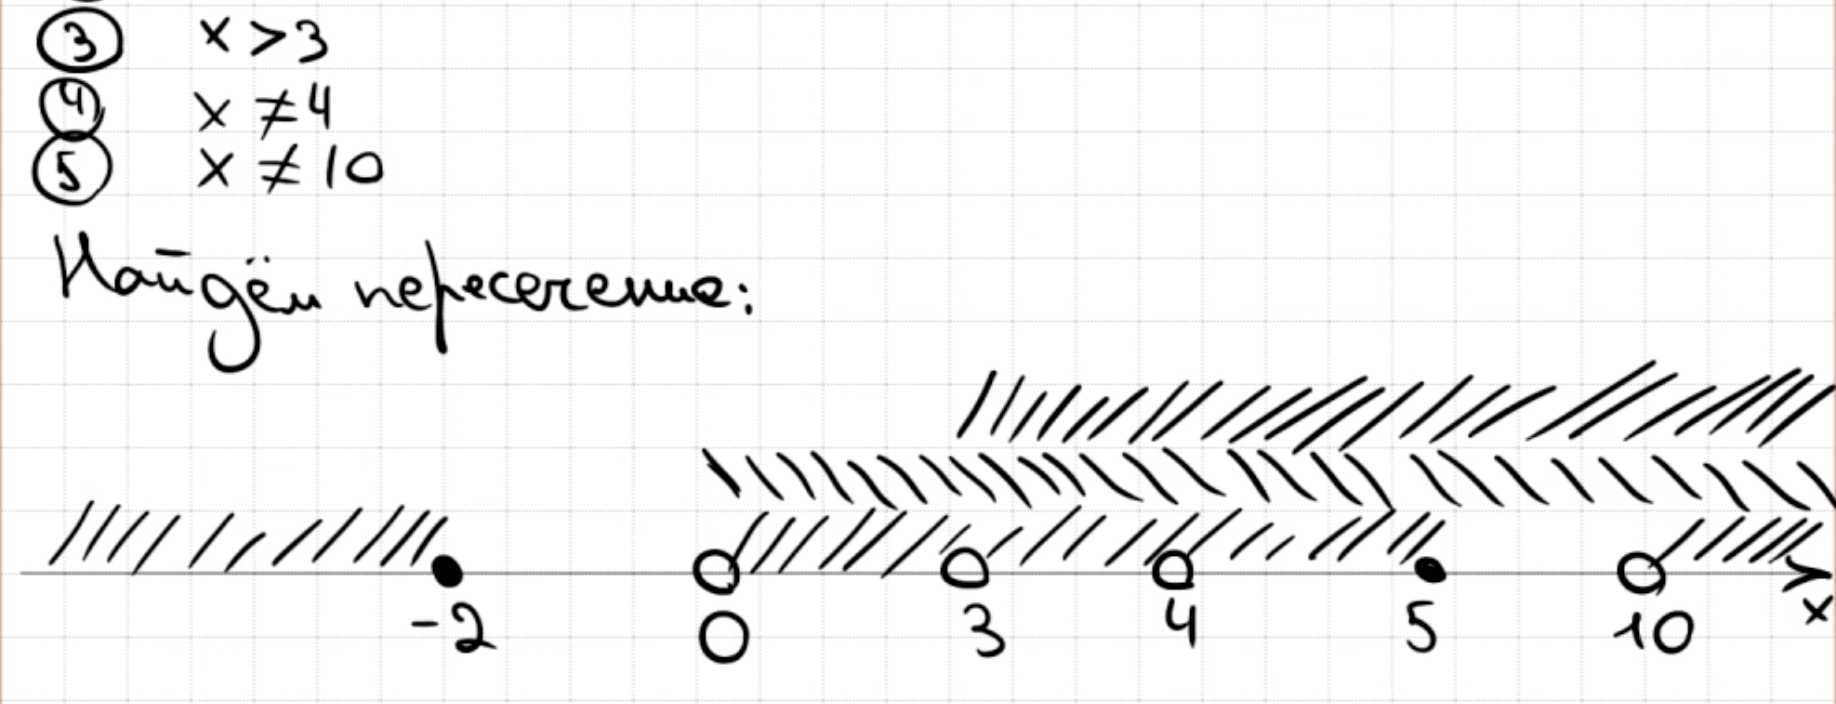 ③ x > 3
④ x ≠ 4
⑤ x ≠ 10
Найдём пересечение:
-2 0 3 4 5 10 x